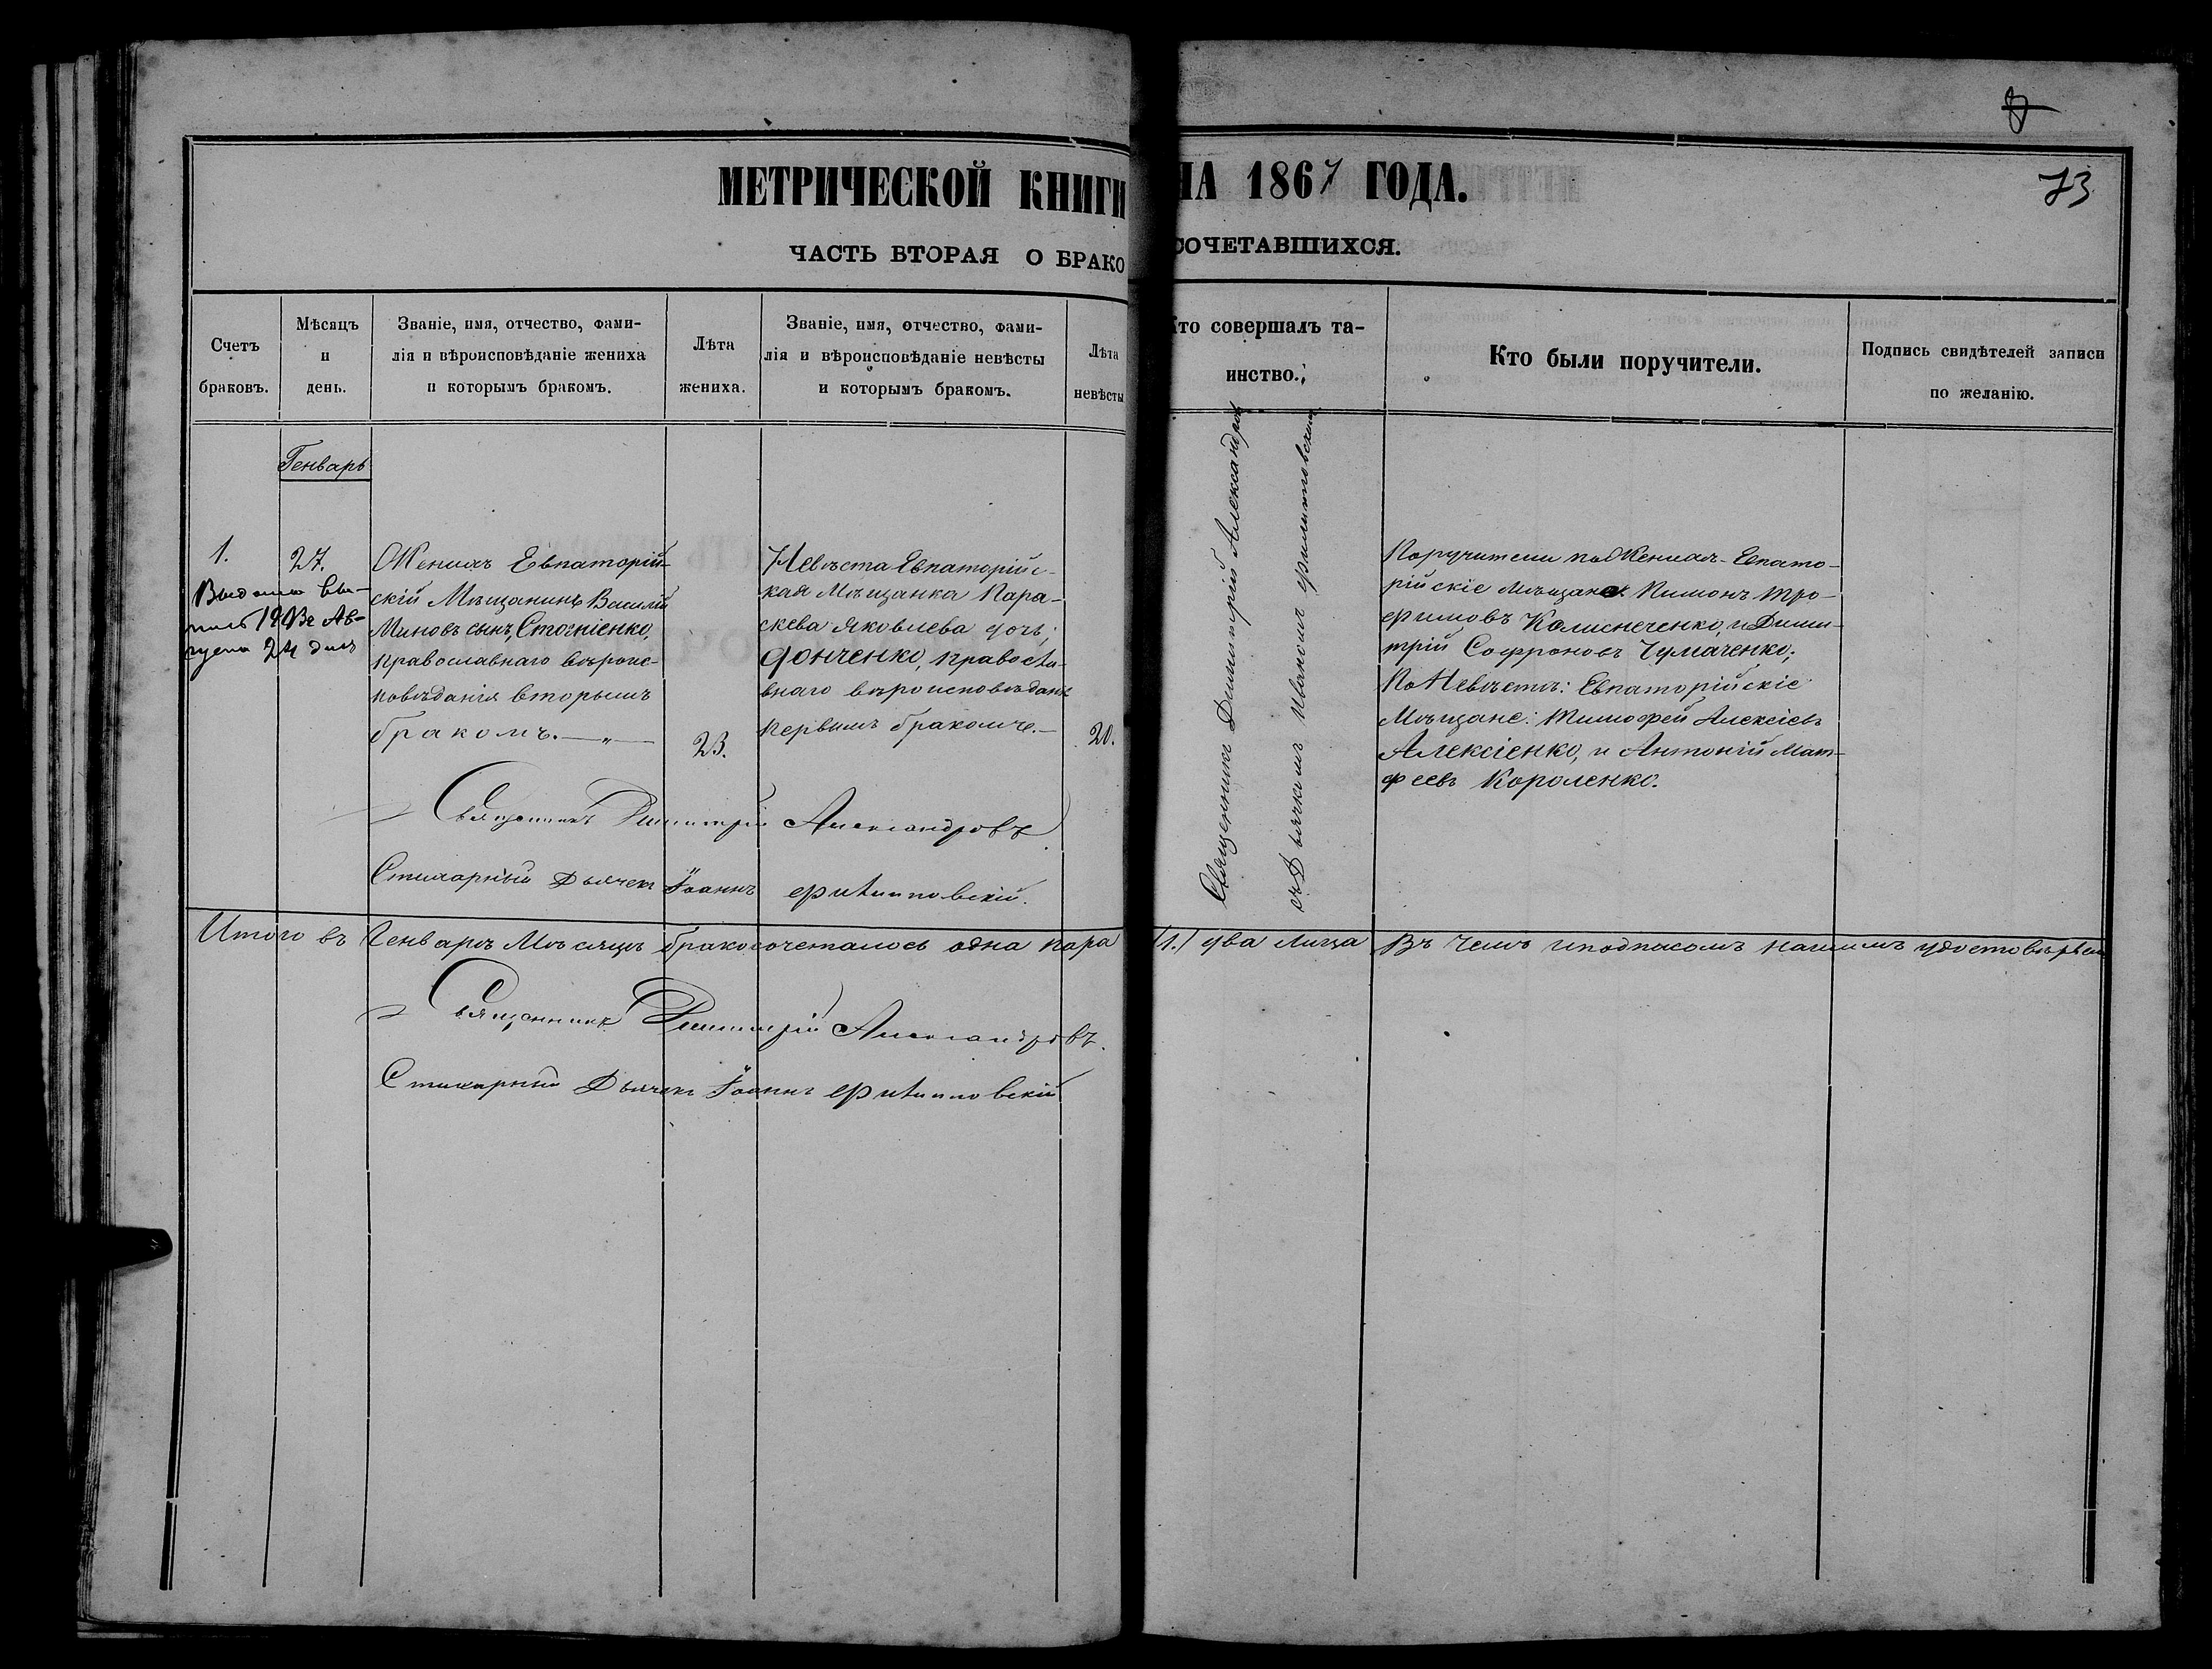 МЕТРИЧЕСКОЙ КНИГИ НА 1867 ГОДА.
73
ЧАСТЬ ВТОРАЯ О БРАКОСОЧЕТАВШИХСЯ.
Счетъ
браковъ.
Мѣсяцъ
и
день.
Званіе, имя, отчество, фами-
лія и вѣроисповѣданіе жениха
и которымъ бракомъ.
Лѣта
жениха.
Званіе, имя, отчество, фами-
лія и вѣроисповѣданіе невѣсты
и которымъ бракомъ.
Лѣта
невѣсты
Кто совершалъ та-
инство.
Кто были поручители.
Подпись свидѣтелей записи
по желанію.
Генварь
1.
27.
Выдана вы-
пись Ав-
густа 24 дня
Женихъ Евпаторій-
скій Мѣщанинъ Василій
Миновъ сынъ, Стогніенко,
православнаго вѣроис-
повѣданія вторымъ
бракомъ.
23.
Невѣста Евпаторійс-
кая Мѣщанка Пара-
скева Яковлева дочь,
Донченко, правосла-
внаго вѣроисповѣданія
первымъ бракомъ.
20.
Священникъ Димитрій Александровъ
съ Дьячкомъ Иваномъ Филиповскимъ
Поручители по Женихѣ Евпато-
рійскіе мѣщане: Пимонъ Тро-
фимовъ Колисниченко, и Дими-
трій Софроновъ Чумаченко;
По Невѣстѣ: Евпаторійскіе
Мѣщане: Тимофей Алексіевъ
Алексіенко, и Антоній Мат-
феевъ Короленко.
Священникъ Димитрій Александровъ
Стихарный Дьячекъ Іоаннъ Филипповскій.
Итого въ Генварѣ Мѣсяцѣ бракосочеталось одна пара (1.) два лица Въ чемъ и подписомъ нашимъ удостовѣряемъ
Священникъ Димитрій Александровъ.
Стихарный Дьячекъ Іоаннъ Филипповскій